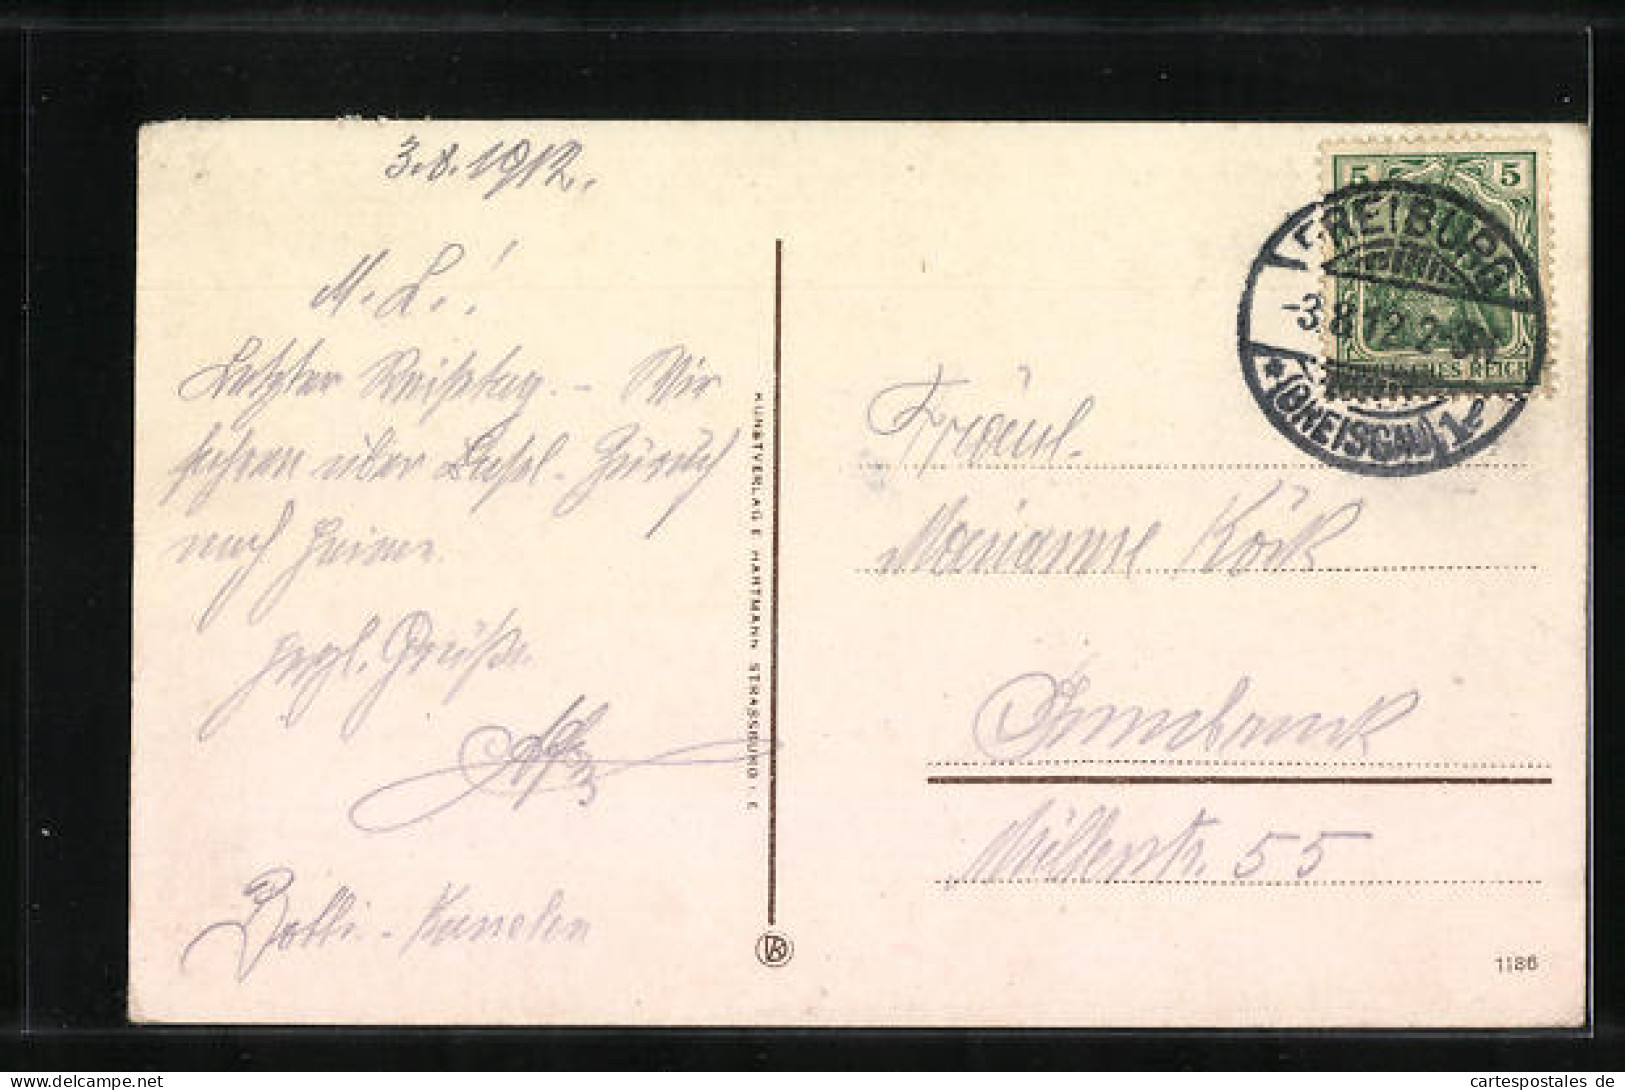 3.8.1912.
M. L.!
Letzter Reisetag. – Wir
fahren über Basel – Zürich
nach Hause.
Hrzl. Grüße
KUNSTVERLAG E HARTMANN STRASSBURG I E
5 5
DEUTSCHES REICH
FREIBURG
-3.8.12.2-3N
*(BREISGAU)1e
Fräul.
Marianne Köck
Innsbruck
Müllerstr. 55
1186
cartespostales.de